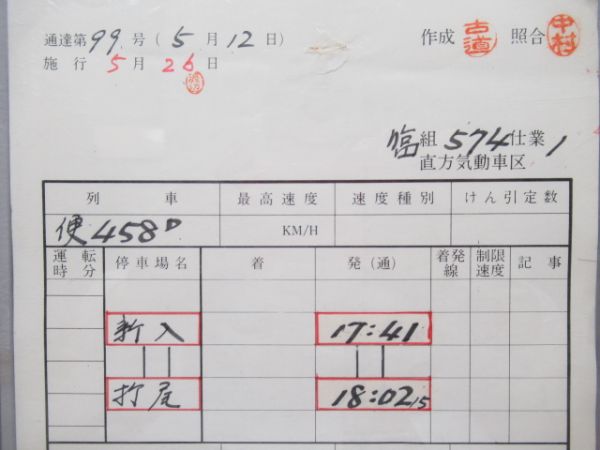 通達第99号(5月12日)
作成 古道 照合 中村
施行 5月26日
臨組574仕業1
直方気動車区
列車 最高速度 速度種別 けん引定数
便458D KM/H
運転時分 停車場名 着 発(通) 着発線 制限速度 記事
新入 17:41
折尾 18:02 15